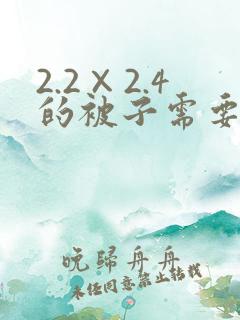 2.2×2.4
的被子需要
晚归舟舟
未经同意禁止转载